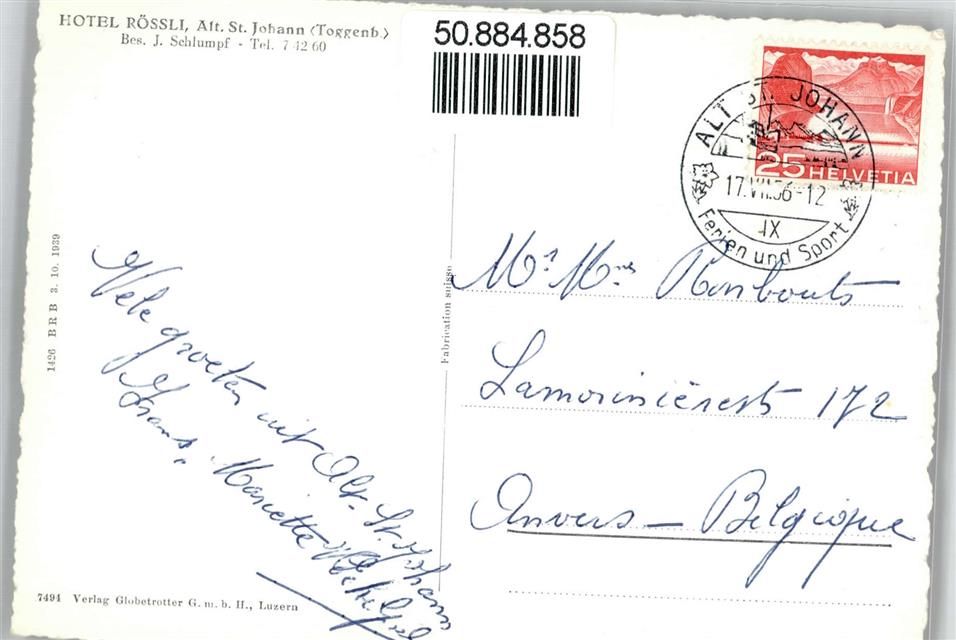 HOTEL RÖSSLI, Alt. St. Johann (Toggenb.)
Bes. J. Schlumpf - Tel. 7 42 60
50.884.858
25 HELVETIA
ALT ST. JOHANN
17.VII.56-12
IX
Ferien und Sport
1426 BRB 3. 10. 1939
Fabrication suisse
Vele groeten uit Alt. St. Johann
Frans, Mariette
Mr Mme Rombouts
Lamorinièrestr 172
Anvers – Belgique
7494 Verlag Globetrotter G. m. b. H., Luzern